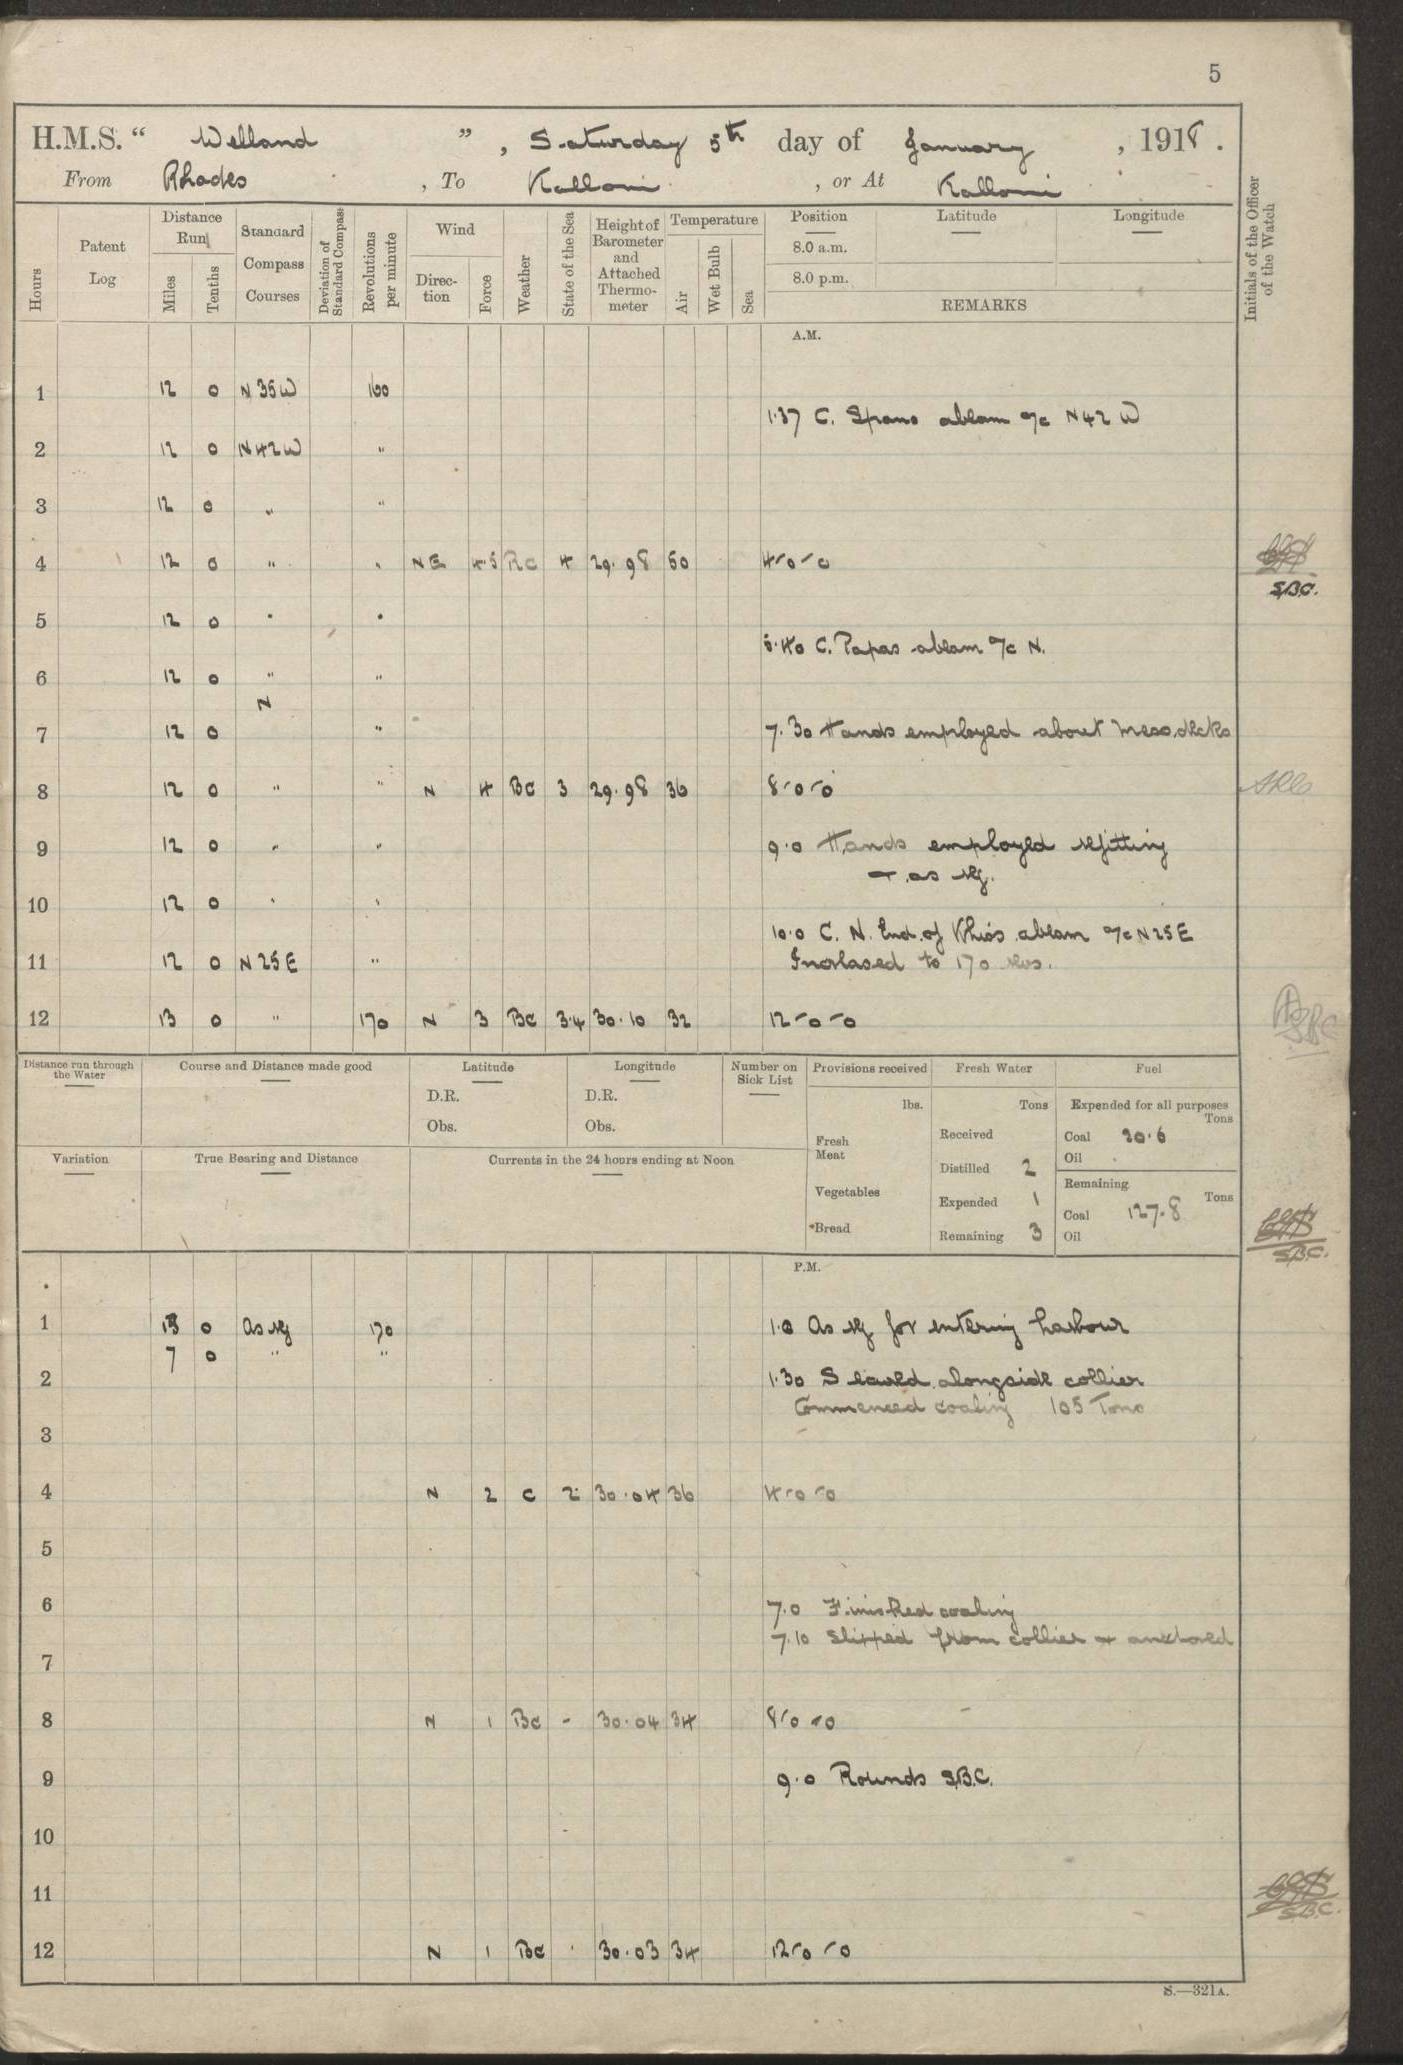 5
H.M.S. “ Welland ”, Saturday 5th day of January, 1918.
From Rhodes, To Kalloni, or At Kalloni
Hours Patent Log Distance Run Miles Tenths Standard Compass Courses Deviation of Standard Compass Revolutions per minute Wind Direction Force Weather State of the Sea Height of Barometer and Attached Thermometer Temperature Air Wet Bulb Sea Position Latitude Longitude
8.0 a.m.
8.0 p.m.
REMARKS
Initials of the Officer of the Watch
A.M.
1 12 0 N 35 W 160
1.37 C. Spano abeam a/c N 42 W
2 12 0 N 42 W "
3 12 0 " "
4 12 0 " " NE 4.5 BC 4 29.98 50 4-0-0
S.B.C.
5 12 0 " "
5.40 C. Papas abeam a/c N.
6 12 0 " "
N
7 12 0 " 7.30 Hands employed about messdecks
8 12 0 " " N 4 BC 3 29.98 36 8-0-0
9 12 0 " " 9.0 Hands employed refitting
& as req.
10 12 0 " "
10.0 C. N. End of Khios abeam a/c N 25 E
11 12 0 N 25 E " Increased to 170 revs.
12 13 0 " 170 N 3 BC 3.4 30.10 32 12-0-0
SBC
Distance run through the Water Course and Distance made good Latitude Longitude Number on Sick List Provisions received Fresh Water Fuel
D.R. D.R. lbs. Tons Expended for all purposes Tons
Obs. Obs. Fresh Meat Received Coal 20.6
Variation True Bearing and Distance Currents in the 24 hours ending at Noon Distilled 2 Oil
Vegetables Expended 1 Remaining Tons
Coal 127.8
Bread Remaining 3 Oil
S.B.C.
P.M.
1 13 0 As req 170 1.0 As req for entering harbour
7 0 " "
2 1.30 Secured alongside collier
Commenced coaling 105 Tons
3
4 N 2 C 2 30.04 36 4-0-0
5
6 7.0 Finished coaling
7.10 Slipped from collier & anchored
7
8 N 1 BC - 30.04 34 8-0-0
9 9.0 Rounds S.B.C.
10
11
S.B.C.
12 N 1 BC 30.03 34 12-0-0
S.—321A.